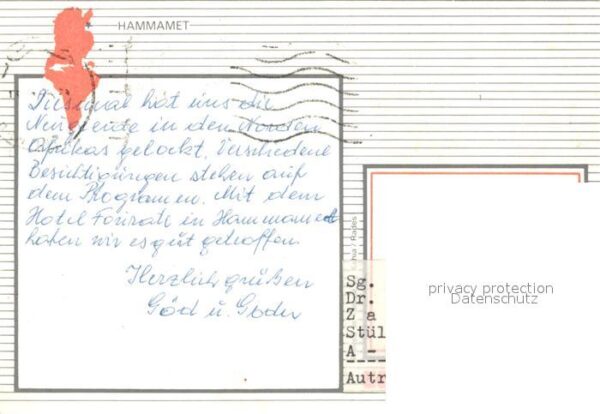 HAMMAMET
Diesmal hat uns die
Neugierde in den Norden
Afrikas gelockt. Verschiedene
Besichtigungen stehen auf
dem Programm. Mit dem
Hotel in Hammamet
haben wir es gut getroffen.
Herzlich grüßen
u.
/ Rades
Sg.
Dr.
Z a
Stül
A -
Autr
privacy protection
Datenschutz